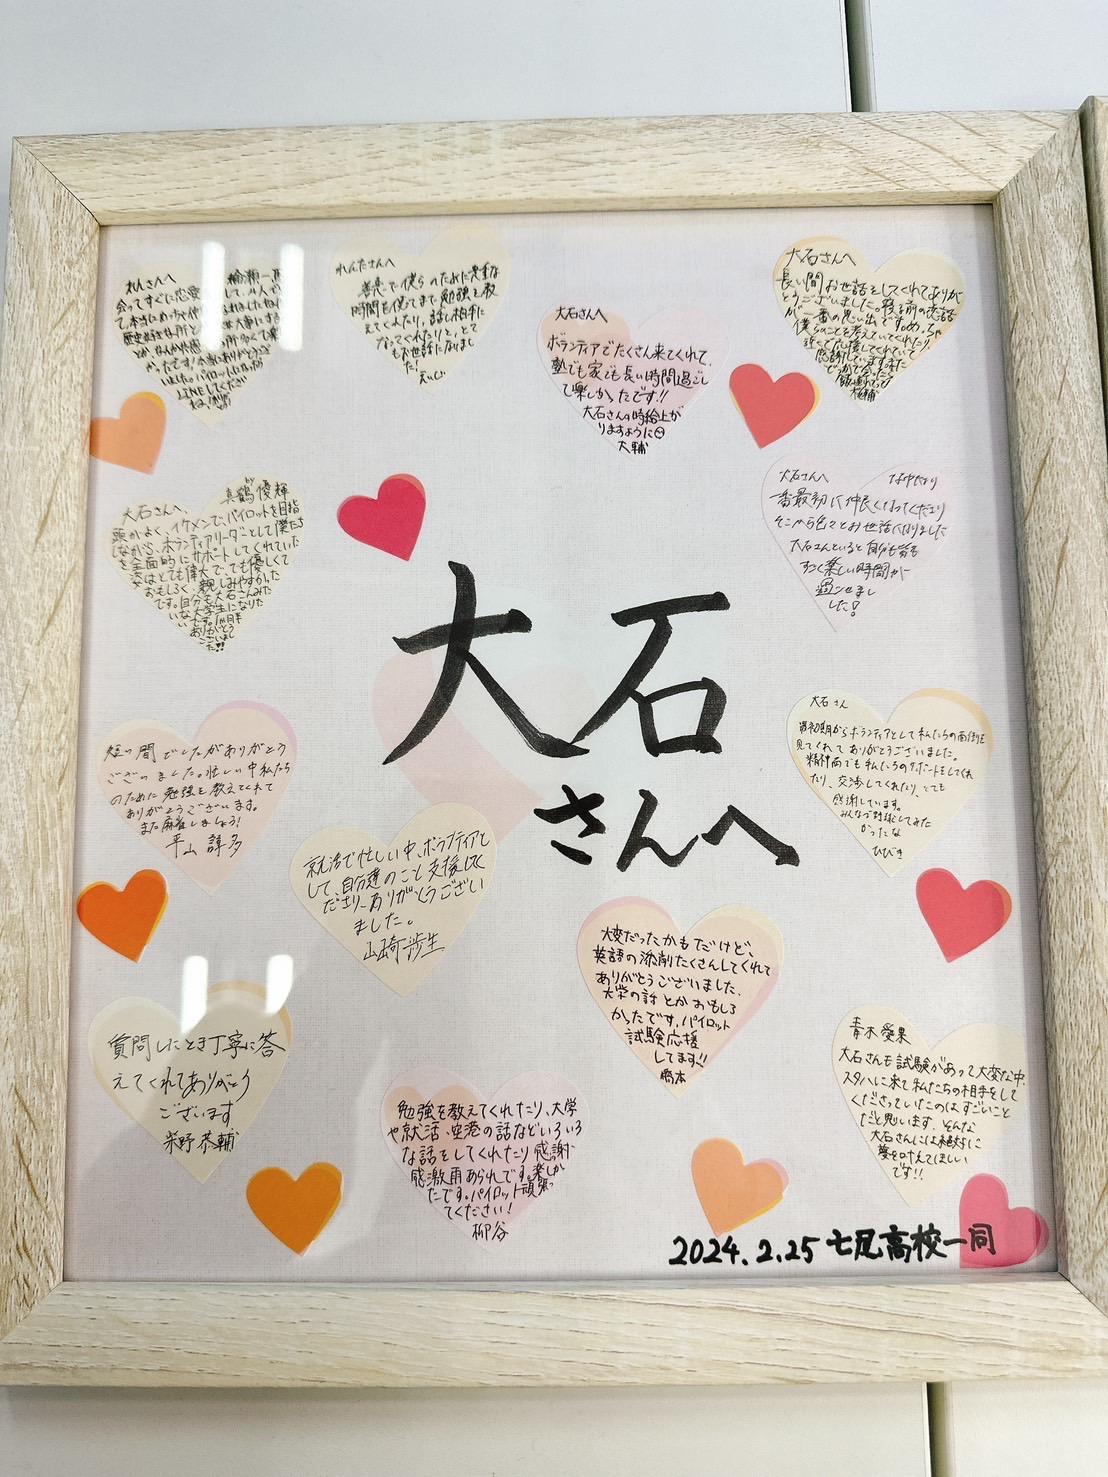 れんさんへ
会ってすぐに恋愛
れんたさんへ
善意で僕らのために貴重な
時間を使ってまで勉強を教
えてくれたり、話し相手に
なってくれたりと、とて
もお世話になりまし
た!
大石さんへ
ボランティアでたくさん来てくれて、
塾でも家でも長い時間過ごし
て楽しかったです!!
大石さんの時給上が
りますように
大輔
大石さんへ
長い間お世話をしてくれてありが
とうございました。寝る前の談話
が一番の思い出です。めっちゃ
僕らのことを考えていてくれたり
近くで応援してくれていて
感謝しています。また
どっかで会ったら
真鶴優輝
大石さんへ、
頭がよく、イケメンで、パイロットを目指
しながら、ボランティアリーダーとして僕たち
を全面的にサポートしてくれていた
姿はとても偉大で、でも優しくて
おもしろく、親しみやすかった
です。自分も大石さんみた
いな大学生になりた
いです。1か月半
ありがとう
ございまし
た!!
大石さんへ
一番最初に仲良くなってくださり
そこから色々とお世話になりました
大石さんといると自分も
すごく楽しい時間が
過ごせまし
した!
大石
さんへ
短い間でしたがありがとう
ございました。忙しい中私たち
のために勉強を教えてくれて
ありがとうございます。
また麻雀しましょう!
平山 諄多
大石さん
最初期からボランティアとして私たちの面倒を
見てくれてありがとうございました。
精神面でも私たちのサポートをしてくれ
たり、交渉してくれたり、とても
感謝しています。
みんなで野球してみた
かったな
ひびき
就活で忙しい中、ボランティアと
して、自分達のこと支援してく
ださり、ありがとうござい
ました。
山崎渉生
大変だったかもだけど、
英語の添削たくさんしてくれて
ありがとうございました、
大学の話とかおもしろ
かったです。パイロット
試験応援
してます!!
橋本
質問したとき丁寧に答
えてくれてありがとう
ございます
米野 恭輔
青木愛果
大石さんも試験があって大変な中、
スタハに来て私たちの相手をして
くださっていたのは、すごいこと
だと思います。そんな
大石さんには絶対に
夢を叶えてほしい
です!!
勉強を教えてくれたり、大学
や就活、空港の話などいろいろ
な話をしてくれたり感謝、
感激雨あられです。楽しか
たです。パイロット頑張っ
てください!
柳谷
2024.2.25 七尾高校一同